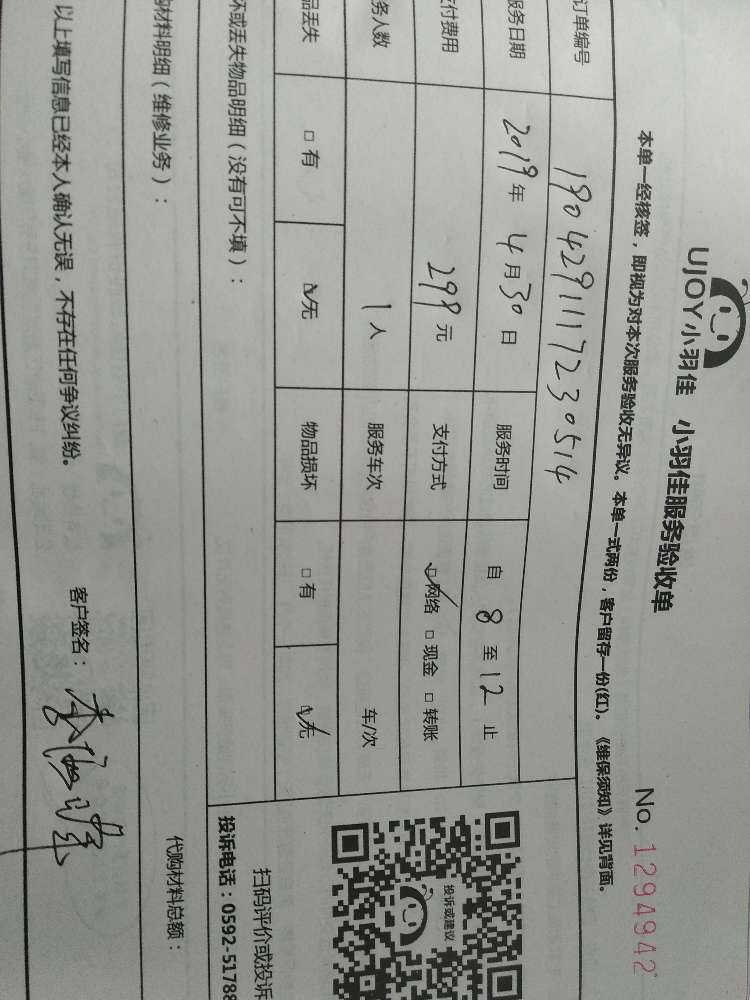 UJOY小羽佳 小羽佳服务验收单
No. 1294942
本单一经核签，即视为对本次服务验收无异议。本单一式两份，客户留存一份(红)。《维保须知》详见背面。
订单编号 19042911117230514
服务日期 2019年4月30日 服务时间 自 8 至 12 止
支付费用 299元 支付方式 ☑网络 □现金 □转账
务人数 1人 服务车次 车/次
品丢失 □有 ☑无 物品损坏 □有 ☑无
坏或丢失物品明细（没有可不填）：
投诉或建议
扫码评价或投诉
投诉电话：0592-51788
材料明细（维修业务）：
代购材料总额：
以上填写信息已经本人确认无误，不存在任何争议纠纷。
客户签名：